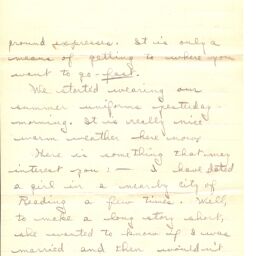 pround expresses. It is only a
means of getting to where you
want to go - fast.
We started wearing our
summer uniforms yesterday
morning. It is really nice
warm weather here now.
Here is something that may
interest you: - I have dated
a girl in a nearby city of
Reading a few times. Well,
to make a long story short,
she wanted to know if I was
married and then wouldn't